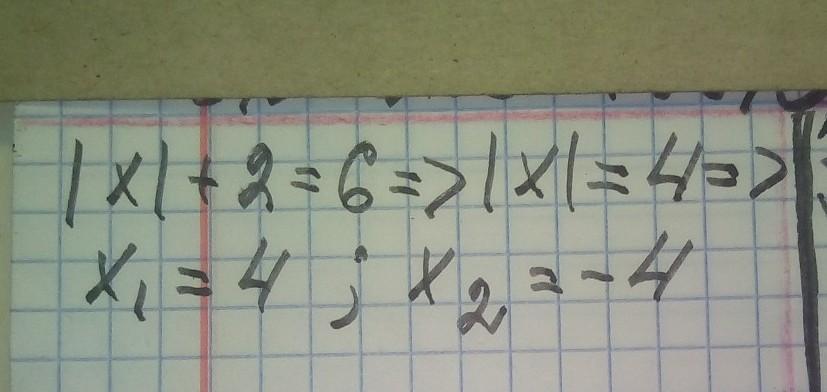 |x| + 2 = 6 => |x| = 4 =>
x₁ = 4 ; x₂ = -4